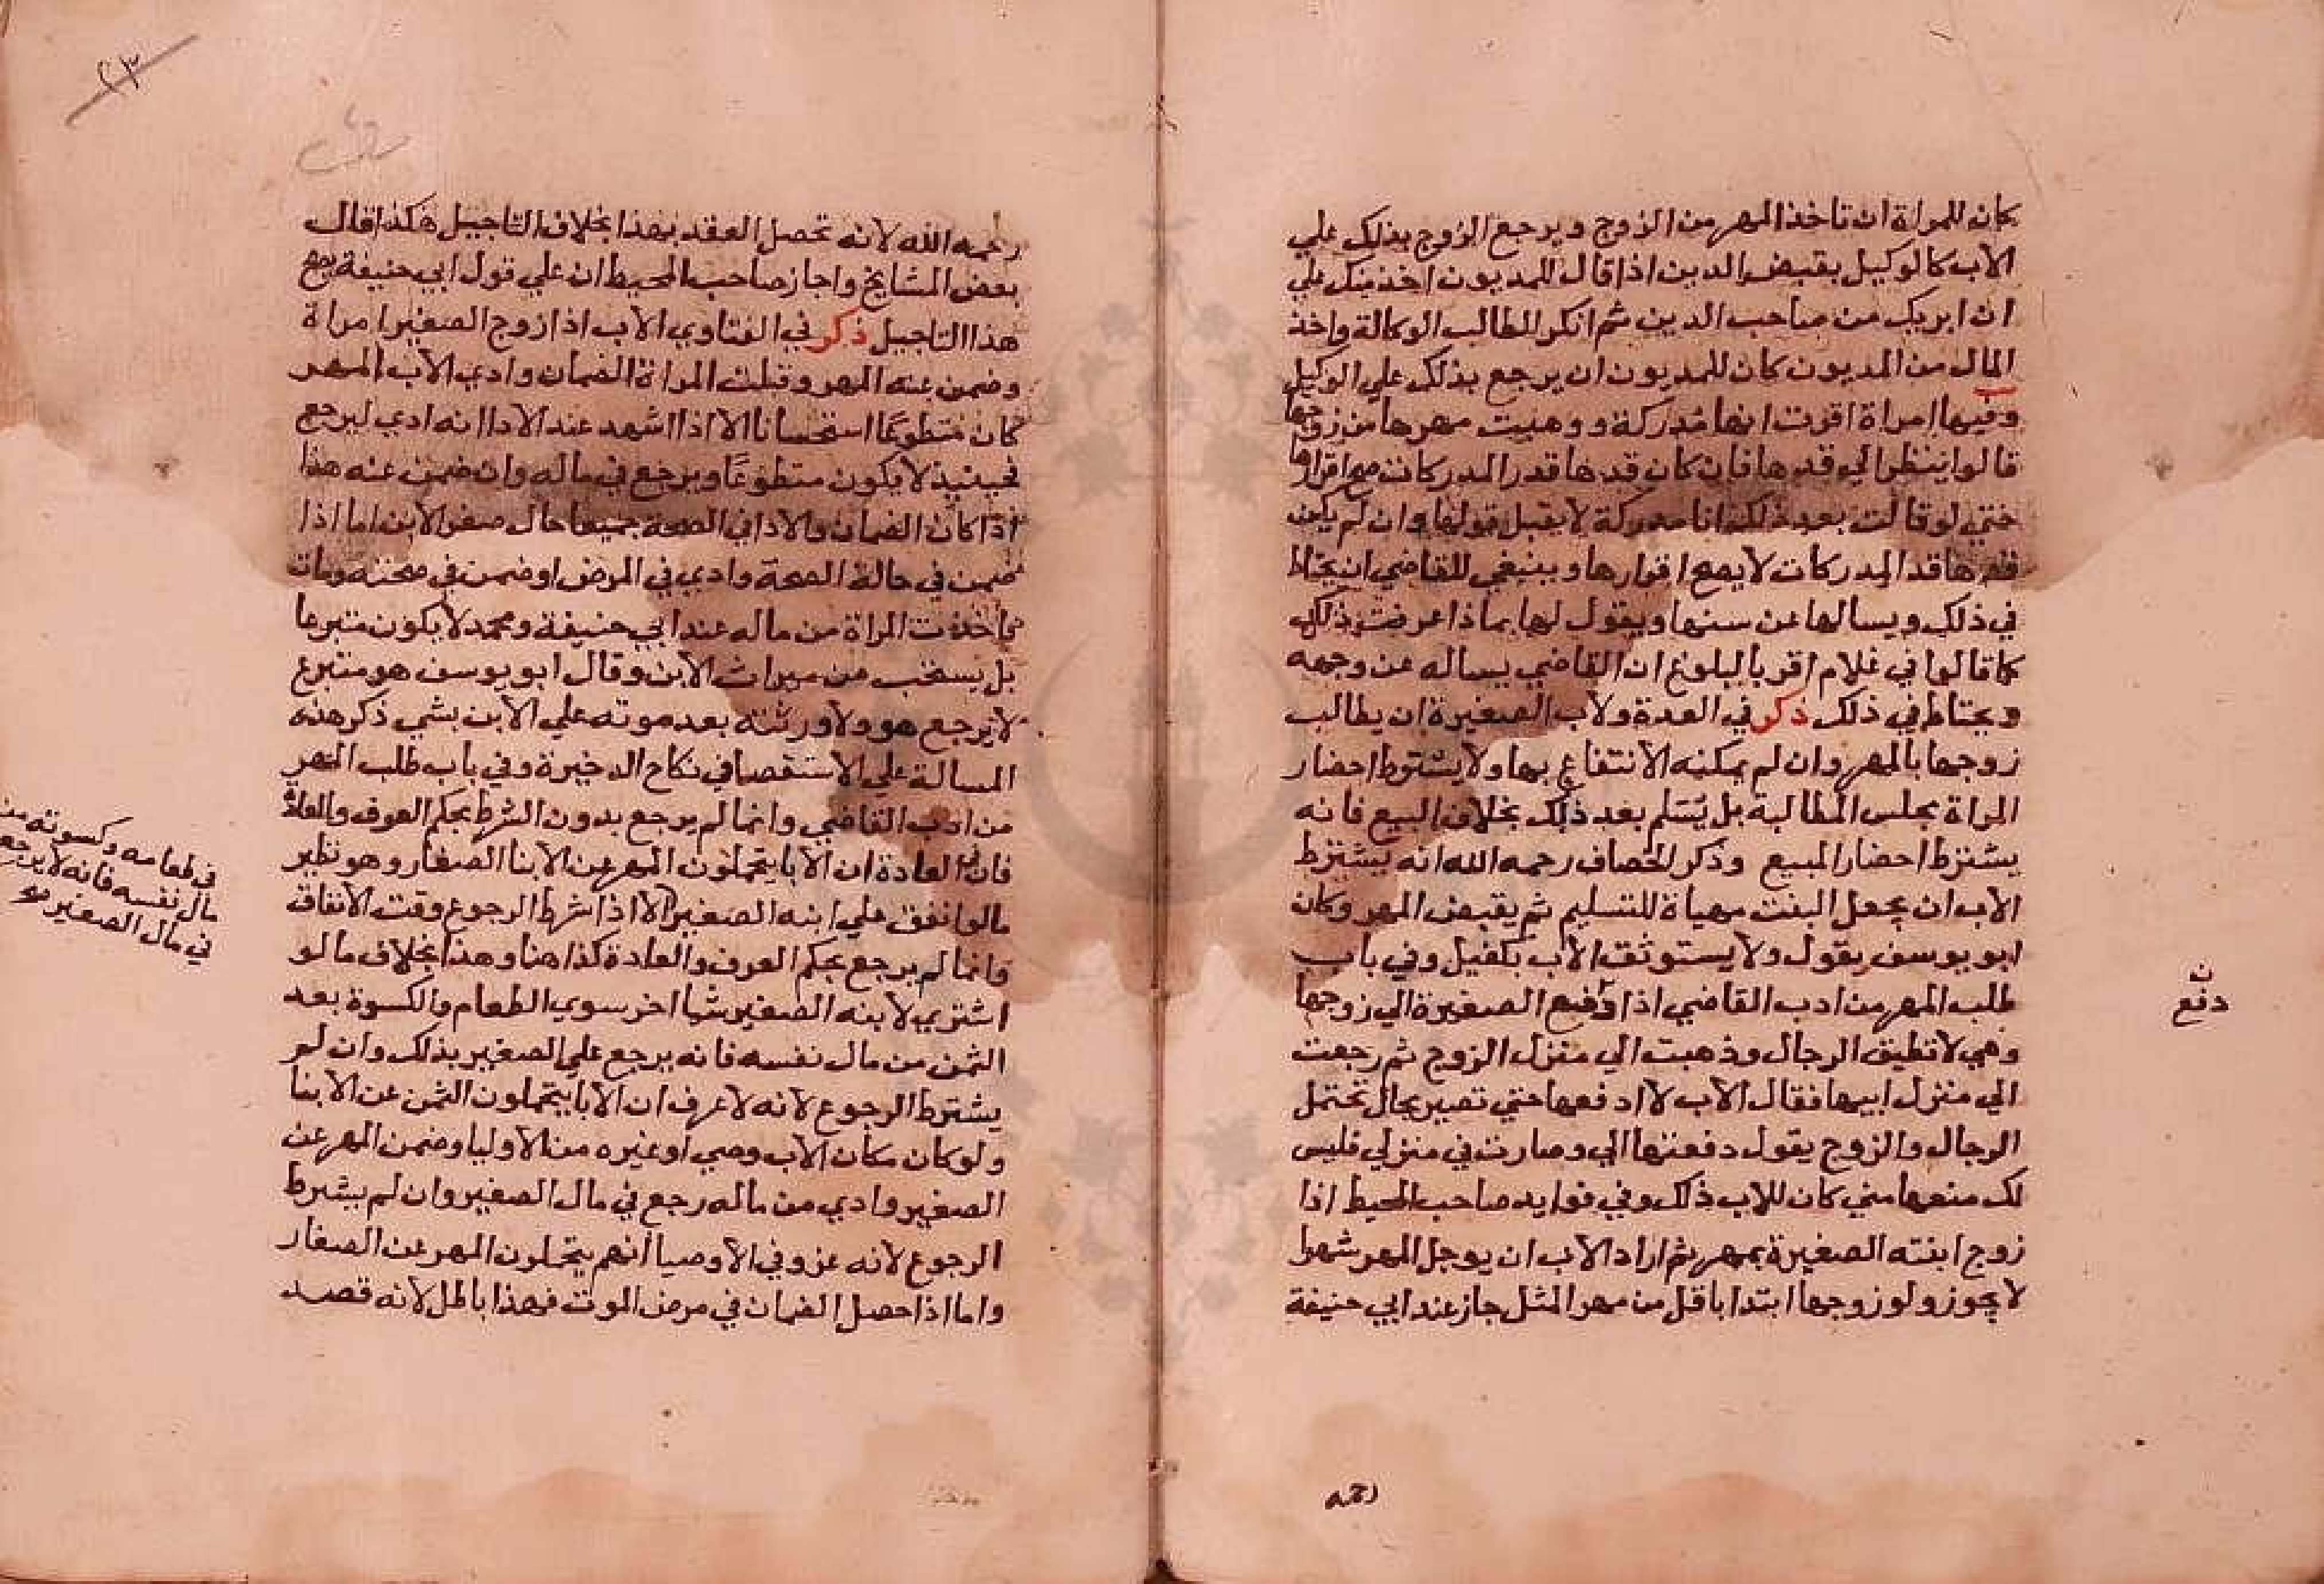 كان للمراة ان تاخذ المهر من الزوج ويرجع الزوج بذلك علي
الاب كالوكيل بقبض الدين اذا قال للمديون اخذ منك علي
ان ابريك من صاحب الدين ثم انكر الطالب الوكالة واخذ
المال من المديون كان للمديون ان يرجع بذلك علي الوكيل
وفيها امراة اقرت انها مدركة ووهبت مهرها من زوجها
قالوا ينظر الي قدها فان كان قدها قدر المدركات صح اقرارها
حتي لو قالت بعد ذلك انا مدركة لا يقبل قولها وان لم يكن
قدها قد المدركات لا يصح اقرارها وينبغي للقاضي ان يحتاط
في ذلك ويسالها عن سنها ويقول لها بماذا عرفت ذلك
كما قالوا في غلام اقر بالبلوغ ان القاضي يساله عن وجهه
ويحتاط في ذلك ذكر في العدة ولاب الصغيرة ان يطالب
زوجها بالمهر وان لم يمكنه الانتفاع بها ولا يشترط احضار
المراة مجلس المطالبة بل يسلم بعد ذلك بخلاف البيع فانه
يشترط احضار المبيع وذكر الخصاف رحمه الله انه يشترط
الاب ان يجعل البنت مهياة للتسليم ثم يقبض المهر وكان
ابو يوسف يقول ولا يستوثق الاب بكفيل وفي باب
طلب المهر من ادب القاضي اذا وضع الصغيرة الي زوجها
ن
دفع
وهي لا تطيق الرجال وذهبت الي منزل الزوج ثم رجعت
الي منزل ابيها فقال الاب لا ادفعها حتي تصير بحال تحتمل
الرجال والزوج يقول دفعتها الي وصارت في منزلي فليس
لك منعها مني كان للاب ذلك وفي فوايد صاحب المحيط اذا
زوج ابنته الصغيرة بمهر ثم اراد الاب ان يوجل المهر شهرا
لا يجوز ولو زوجها ابتدا باقل من مهر المثل جاز عند ابي حنيفة
رحمه
٢٣
رحمه الله لانه تحصل العقد بهذا بخلاف التاجيل هكذا قال
بعض المشايخ واجاز صاحب المحيط ان علي قول ابي حنيفة يصح
هذا التاجيل ذكر في الفتاوي الاب اذا زوج الصغير امراة
وضمن عنه المهر وقبلت المراة الضمان وادي الاب المهر
كان متطوعا استحسانا الا اذا اشهد عند الادا انه ادي ليرجع
فحينيذ لا يكون متطوعا ويرجع في ماله وان ضمن عنه هذا
اذا كان الضمان والادا في الصحة جميعا حال صغر الابن اما اذا
ضمن في حالة الصحة وادي في المرض او ضمن في صحته ومات
فاخذت المراة من ماله عند ابي حنيفة ومحمد لا يكون متبرعا
بل يستحب من ميراث الابن وقال ابو يوسف هو متبرع
لا يرجع هو ولا ورثته بعد موته علي الابن بشي ذكر هذه
المسالة علي الاستقصا في نكاح الدخيرة وفي باب طلب المهر
من ادب القاضي وانما لم يرجع بدون الشرط بحكم العرف والعادة
فان العادة ان الابا يتحملون المهر عن الابنا الصغار وهو نظير
مالوا نفق علي ابنه الصغير الا اذا شرط الرجوع وقت الانفاق
في طعامه وكسوته من
مال نفسه فانه لا يرجع
في مال الصغير
وانما لم يرجع بحكم العرف والعادة كذا هنا وهذا بخلاف ما لو
اشتري لابنه الصغير شيا اخر سوي الطعام والكسوة بعد
الثمن من مال نفسه فانه يرجع علي الصغير بذلك وان لم
يشترط الرجوع لانه لا عرف ان الابا يتحملون الثمن عن الابنا
ولو كان مكان الاب وصي او غيره من الاوليا وضمن المهر عن
الصغير وادي من ماله رجع في مال الصغير وان لم يشرط
الرجوع لانه عزو في الاوصيا انهم يتحملون المهر عن الصغار
واما اذا حصل الضمان في مرض الموت فهذا باطل لانه قصد